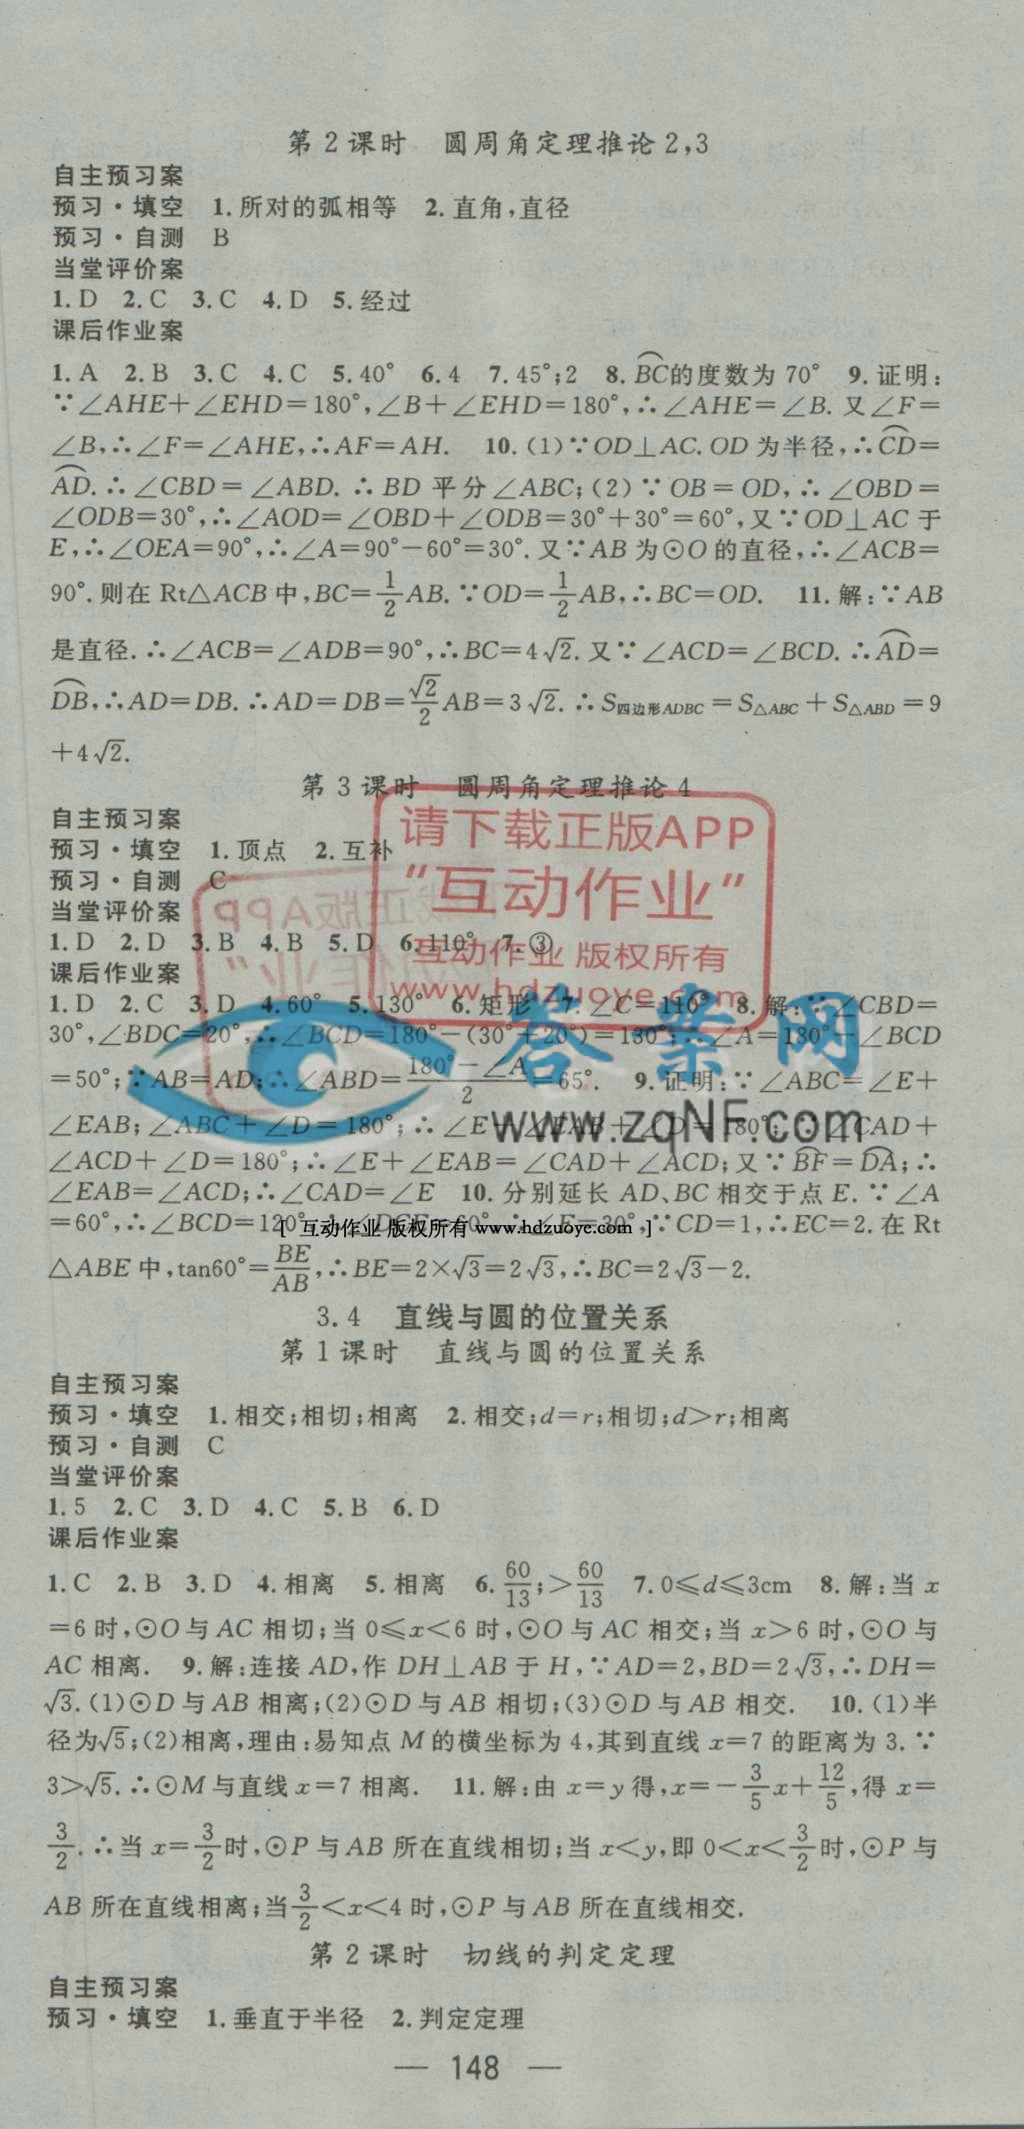 第2课时 圆周角定理推论2,3
自主预习案
预习·填空 1.所对的弧相等 2.直角,直径
预习·自测 B
当堂评价案
1.D 2.C 3.C 4.D 5.经过
课后作业案
1.A 2.B 3.C 4.C 5.40° 6.4 7.45°;2 8.⌒BC的度数为70° 9.证明:
∵∠AHE+∠EHD=180°,∠B+∠EHD=180°,∴∠AHE=∠B.又∠F=
∠B,∴∠F=∠AHE,∴AF=AH. 10.(1)∵OD⊥AC.OD为半径,∴⌒CD=
⌒AD.∴∠CBD=∠ABD.∴BD平分∠ABC;(2)∵OB=OD,∴∠OBD=
∠ODB=30°,∴∠AOD=∠OBD+∠ODB=30°+30°=60°,又∵OD⊥AC于
E,∴∠OEA=90°,∴∠A=90°-60°=30°.又∵AB为⊙O的直径,∴∠ACB=
90°.则在Rt△ACB中,BC=1/2AB.∵OD=1/2AB,∴BC=OD. 11.解:∵AB
是直径.∴∠ACB=∠ADB=90°,∴BC=4√2.又∵∠ACD=∠BCD.∴⌒AD=
⌒DB,∴AD=DB.∴AD=DB=√2/2AB=3√2.∴S四边形ADBC=S△ABC+S△ABD=9
+4√2.
第3课时 圆周角定理推论4
自主预习案
预习·填空 1.顶点 2.互补
预习·自测 C
当堂评价案
1.D 2.D 3.B 4.B 5.D 6.110° 7.③
课后作业案
1.D 2.C 3.D 4.60° 5.130° 6.矩形 7.∠C=110° 8.解:∵∠CBD=
30°,∠BDC=20°,∴∠BCD=180°-(30°+20°)=130°,∴∠A=180°-∠BCD
=50°;∵AB=AD;∴∠ABD=(180°-∠A)/2=65°. 9.证明:∵∠ABC=∠E+
∠EAB;∠ABC+∠D=180°;∴∠E+∠EAB+∠D=180°;∵∠CAD+
∠ACD+∠D=180°;∴∠E+∠EAB=∠CAD+∠ACD;又∵⌒BF=⌒DA;∴
∠EAB=∠ACD;∴∠CAD=∠E 10.分别延长AD、BC相交于点E.∵∠A
=60°,∴∠BCD=120°,∴∠DCE=60°,∴∠E=30°,∵CD=1,∴EC=2.在Rt
△ABE中,tan60°=BE/AB,∴BE=2×√3=2√3,∴BC=2√3-2.
3.4 直线与圆的位置关系
第1课时 直线与圆的位置关系
自主预习案
预习·填空 1.相交;相切;相离 2.相交;d=r;相切;d>r;相离
预习·自测 C
当堂评价案
1.5 2.C 3.D 4.C 5.B 6.D
课后作业案
1.C 2.B 3.D 4.相离 5.相离 6.60/13;>60/13 7.0≤d≤3cm 8.解:当x
=6时,⊙O与AC相切;当0≤x<6时,⊙O与AC相交;当x>6时,⊙O与
AC相离. 9.解:连接AD,作DH⊥AB于H,∵AD=2,BD=2√3,∴DH=
√3.(1)⊙D与AB相离;(2)⊙D与AB相切;(3)⊙D与AB相交. 10.(1)半
径为√5;(2)相离,理由:易知点M的横坐标为4,其到直线x=7的距离为3.∵
3>√5.∴⊙M与直线x=7相离. 11.解:由x=y得,x=-3/5x+12/5,得x=
3/2.∴当x=3/2时,⊙P与AB所在直线相切;当x<y,即0<x<3/2时,⊙P与
AB所在直线相离;当3/2<x<4时,⊙P与AB所在直线相交.
第2课时 切线的判定定理
自主预习案
预习·填空 1.垂直于半径 2.判定定理
— 148 —
请下载正版APP
“互动作业”
互动作业 版权所有
www.hdzuoye.com
答案网
www.zqNF.com
[ 互动作业 版权所有 www.hdzuoye.com ]